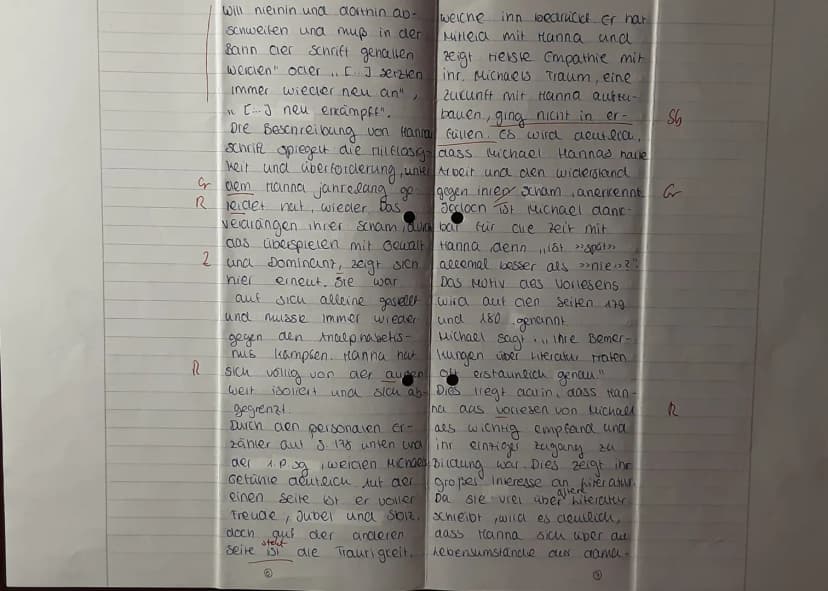 will hieinin und dorthin ab-
schweifen und muß in der
Bann der Schrift gehalten
werden" oder „[...] setzten
immer wieder neu an",
„[...] neu erkämpft".
Die Beschreibung von Hannas
Schrift spiegelt die Hilflosig-
keit und Überforderung, unter
Gr dem Hanna jahrelang ge-
R leidet hat, wieder. Das
verdrängen ihrer Scham, durch
das überspielen mit Gewalt
Z und Dominanz, zeigt sich
hier erneut. Sie war
auf sich alleine gestellt
und musste immer wieder
gegen den Analphabetis-
mus kämpfen. Hanna hat
R sich völlig von der außen
welt isoliert und sich ab-
gegrenzt.
Durch den personalen Er-
zähler auf S. 178 unten und
der 1. P. sg, werden Michaels
Gefühle deutlich. Auf der
einen Seite ist er voller
Freude, Jubel und Stolz,
doch auf der anderen
steht
Seite ist die Traurigkeit,
6
welche ihn bedrückt. Er hat
Mitleid mit Hanna und
zeigt tiefste Empathie mit
ihr. Michaels Traum, eine
Zukunft mit Hanna aufzu-
bauen, ging nicht in er- Sb
füllen. Es wird deutlich,
dass Michael Hannas harte
Arbeit und den Widerstand
gegen ihrer Scham, anerkennt Gr
Jedoch ist Michael dank-
bar für die Zeit mit
Hanna denn „ist »spät»
allemal besser als »nie»?".
Das Motiv des Vorlesens
wird auf den Seiten 179
und 180 genannt.
Michael sagt, „Ihre Bemer-
kungen über Literatur trafen
oft erstaunlich genau."
Dies liegt darin, dass Han-
na das vorlesen von Michael R
als wichtig empfand und
ihr einziger Zugang zu
Bildung war. Dies zeigt ihr
großes Interesse an Literatur.
ältere
Da sie viel über Literatur
schreibt, wird es deutlich,
dass Hanna sich über die
Lebensumstände der dama-